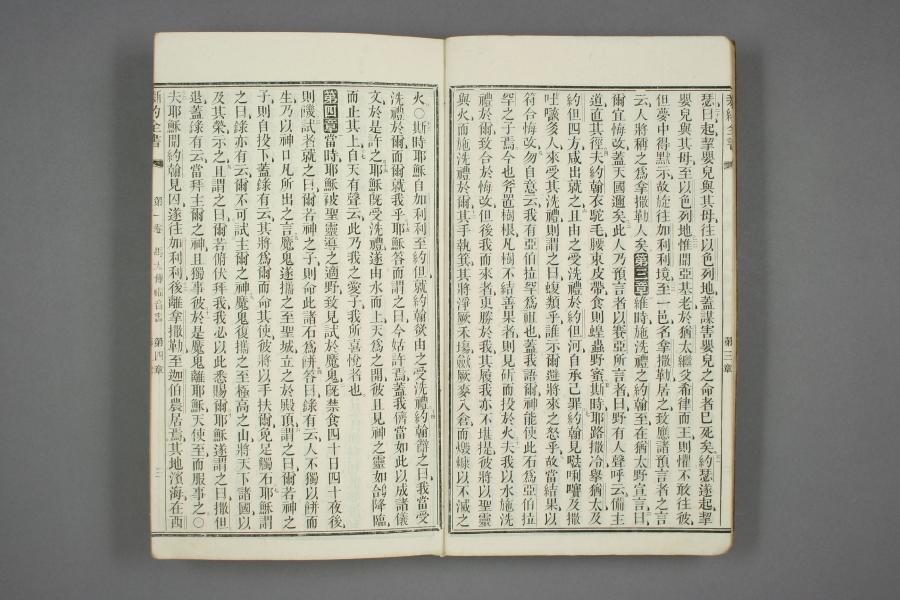 瑟曰起挈嬰兒與其母往以色列地蓋謀害嬰兒之命者已死矣約瑟遂起挈
嬰兒與其母至以色列地惟聞亞基老於猶太繼父希律而王則懼不敢往彼
但夢中得默示故旋往加利利境至一邑名拿撒勒居之致應諸預言者之言
云人將稱之爲拿撒勒人矣第三章維時施洗禮之約翰至在猶太野宣言曰
爾宜悔改蓋天國邇矣此人乃預言者以賽亞所言者曰野有人聲呼云備主
道直其徑夫約翰衣駝毛腰束皮帶食則蝗蟲野蜜斯時耶路撒冷舉猶太及
約但四方咸出就之且由之受洗禮於約但河自承己罪約翰見𠵽唎㘔及撒
吐㗭多人來受其洗禮則謂之曰蝮類乎誰示爾避將來之怒乎故當結果以
符合悔改勿自意云我有亞伯拉罕爲祖也蓋我語爾神能使此石爲亞伯拉
罕之子焉今也斧置樹根凡樹不結善果者則見斫而投於火夫我以水施洗
禮於爾致合於悔改但後我而來者更勝於我其履我亦不堪提彼將以聖靈
與火而施洗禮於爾其手執箕其將淨厥禾塲歛厥麥入倉而燬糠以不滅之
新約全書 第一卷 馬太傳福音書 第三章 第四章
火〇斯時耶穌自加利利至約但就約翰欲由之受洗禮約翰辭之曰我當受
洗禮於爾而爾就我乎耶穌答而謂之曰今姑許焉蓋我儕當如此以成諸儀
文於是許之耶穌旣受洗禮遂由水而上天爲之開彼且見神之靈如鴿降臨
而止其上自天有聲云此乃我之愛子我所喜悅者也
第四章當時耶穌被聖靈導之適野致見試於魔鬼旣禁食四十日四十夜後
則饑試者就之曰爾若神之子則命此諸石爲餅答曰錄有云人不獨以餅而
生乃以神口凡所出之言魔鬼遂攜之至聖城立之於殿頂謂之曰爾若神之
子則自投下蓋錄有云其將爲爾而命其使彼將以手扶爾免足觸石耶穌謂
之曰錄亦有云爾不可試主爾之神魔鬼復攜之至極高之山將天下諸國以
及其榮示之且謂之曰爾若俯伏拜我我必以此悉賜爾耶穌遂謂之曰撒但
退蓋錄有云當拜主爾之神且獨事彼於是魔鬼離耶穌天使至而服事之〇
夫耶穌聞約翰見囚遂往加利利後離拿撒勒至迦伯農居焉其地濱海在西